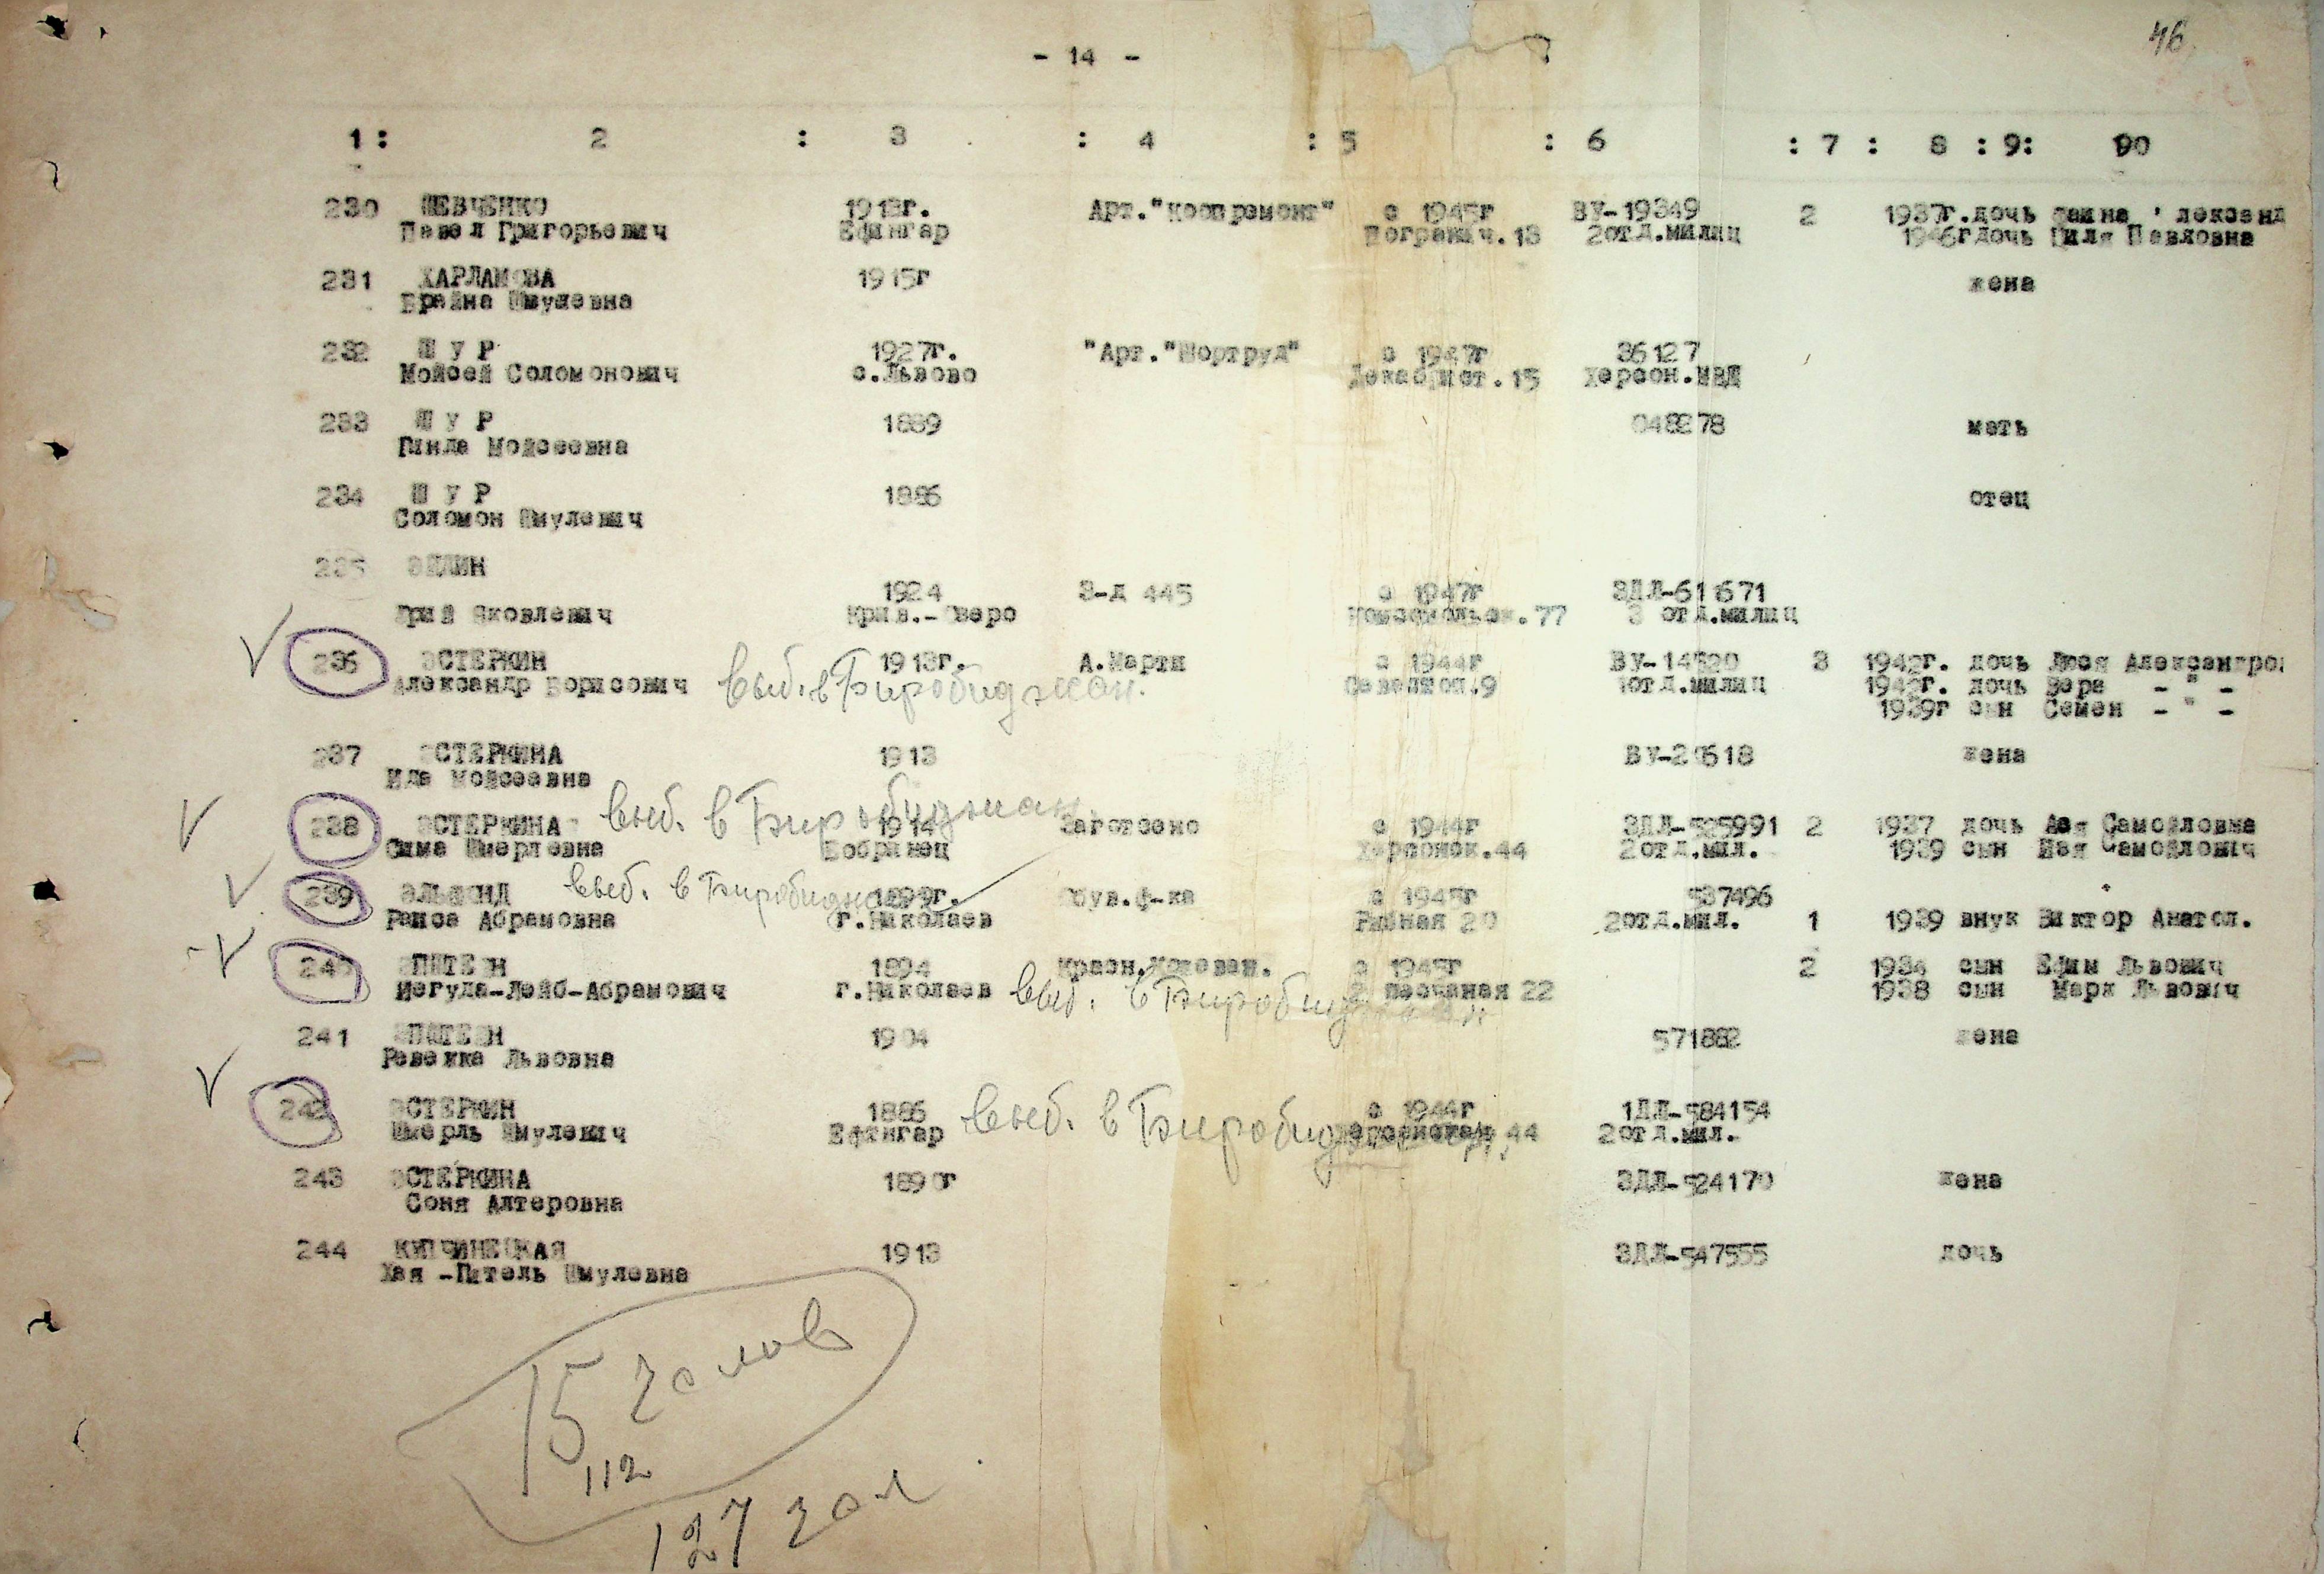 46
- 14 -
1 : 2 : 3 : 4 : 5 : 6 : 7 : 8 : 9: 90
230 ШЕВЧЕНКО 1913г. Арт."Коопремонт" с 1945г ВУ-19349 2 1937г.дочь Фаина лександ
Павел Григорьевич Ефингар Погранич.13 2отд.милиц 1946г дочь Циля Павловна
231 ХАРЛАМОВА 1915г жена
Брайна Шмулевна
232 Ш У Р 1927г. "Арт."Портруд" с 1947г 36127
Мойсей Соломонович с.Львово Декабрист.15 Херсон.МВД
233 Ш У Р 1889 048278 мать
Гинда Мойсеевна
234 Ш У Р 1886 отец
Соломон Шмулевич
235 ЭДЛИН
1924 З-д 445 с 1947г ЗДЛ-611671
Юрий Яковлевич Крив.-Озеро Комсомольск.77 3 отд.милиц
236 ЭСТЕРКИН 1913г. А.Марти с 1944г ВУ-14520 3 1942г. дочь Люся Александро
Александр Борисович выб. в Биробиджан. 1отд.милиц 194 г. дочь Вера - " -
1939г сын Семен - " -
237 ЭСТЕРКИНА 1913 жена
Ида Мойсеевна
238 ЭСТЕРКИНА выб. в Биробиджан 1914 Заготсено с 1944г ЗДЛ-525991 2 1937 дочь Ася Самойловна
Сима Шмерлевна Бобринец Херсонск.44 2отд.мил. 1939 сын Самойлович
239 выб. в Биробиджан 1899г. ф-ка с 1945г 537496
Раиса Абрамовна г.Николаев Рыбная 20 2отд.мил. 1 1939 внук Виктор Анатол.
240 ЭПШТЕЙН 1894 с 1945г 2 1934 сын Ефим Львович
Иегуда-Лейб-Абрамович г.Николаев выб. в Биробиджан 2 Песчаная 22 1938 сын Марк Львович
241 ЭПШТЕЙН 1904 571882 жена
Ревекка Львовна
242 ЭСТЕРКИН 1886 с 1944г 1ДЛ-584154
Шмерль Шмулевич Ефингар выб. в Биробиджан. 44 2отд.мил.
243 ЭСТЕРКИНА 1890г ЗДЛ-524170 жена
Соня Алтеровна
244 1913 ЗДЛ-547555 дочь
Хая -Гитель Шмулевна
15 голов
112
127 гол